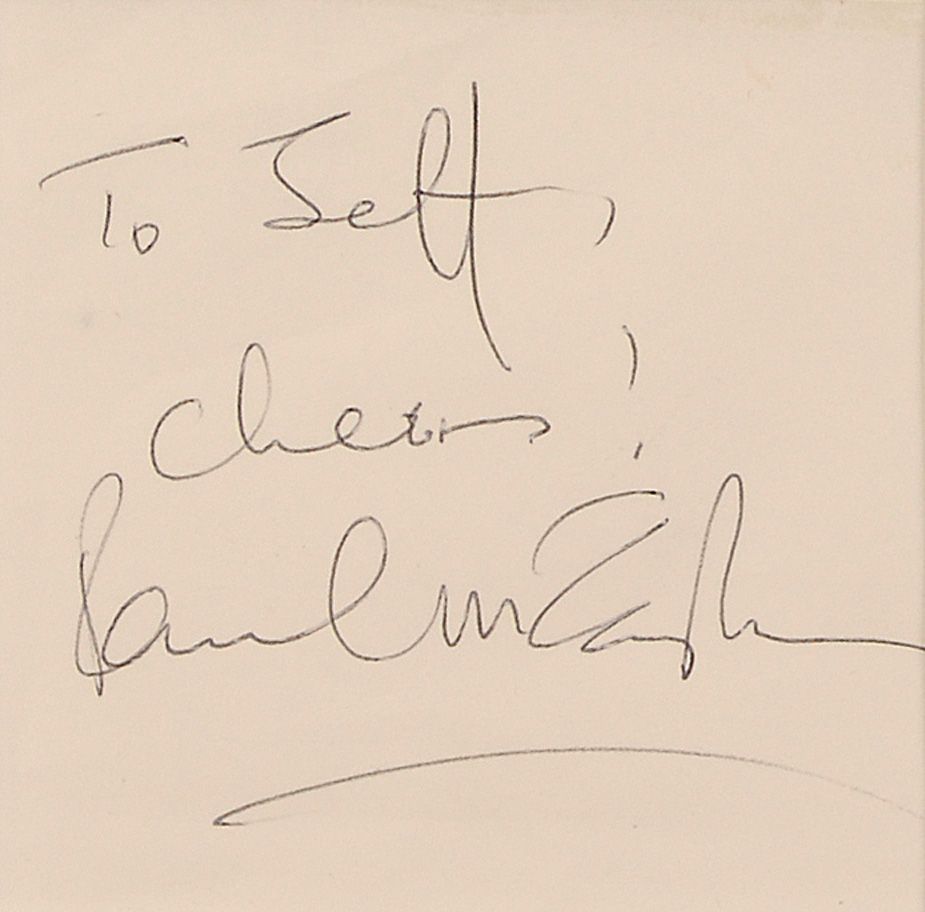 To Jeff,
cheers!
Paul McCartney